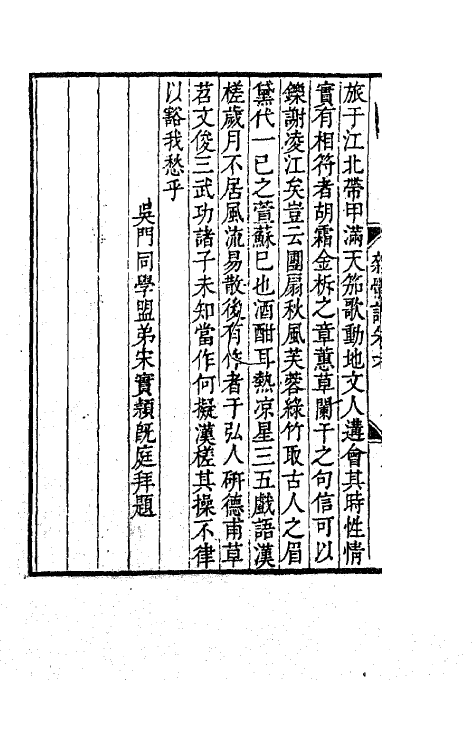 旅于江北帶甲滿天笳歌動地文人遘會其時性情
實有相符者胡霜金柝之章蕙草闌干之句信可以
鑠謝凌江矣豈云團扇秋風芙蓉綠竹取古人之眉
黛代一已之萱蘇已也酒酣耳熱凉星三五戲語漢
槎歲月不居風流易散後有作者于弘人硏德甫草
苕文俊三武功諸子未知當作何擬漢槎其操不律
以豁我愁乎
吳門同學盟弟宋實頴旣庭拜題